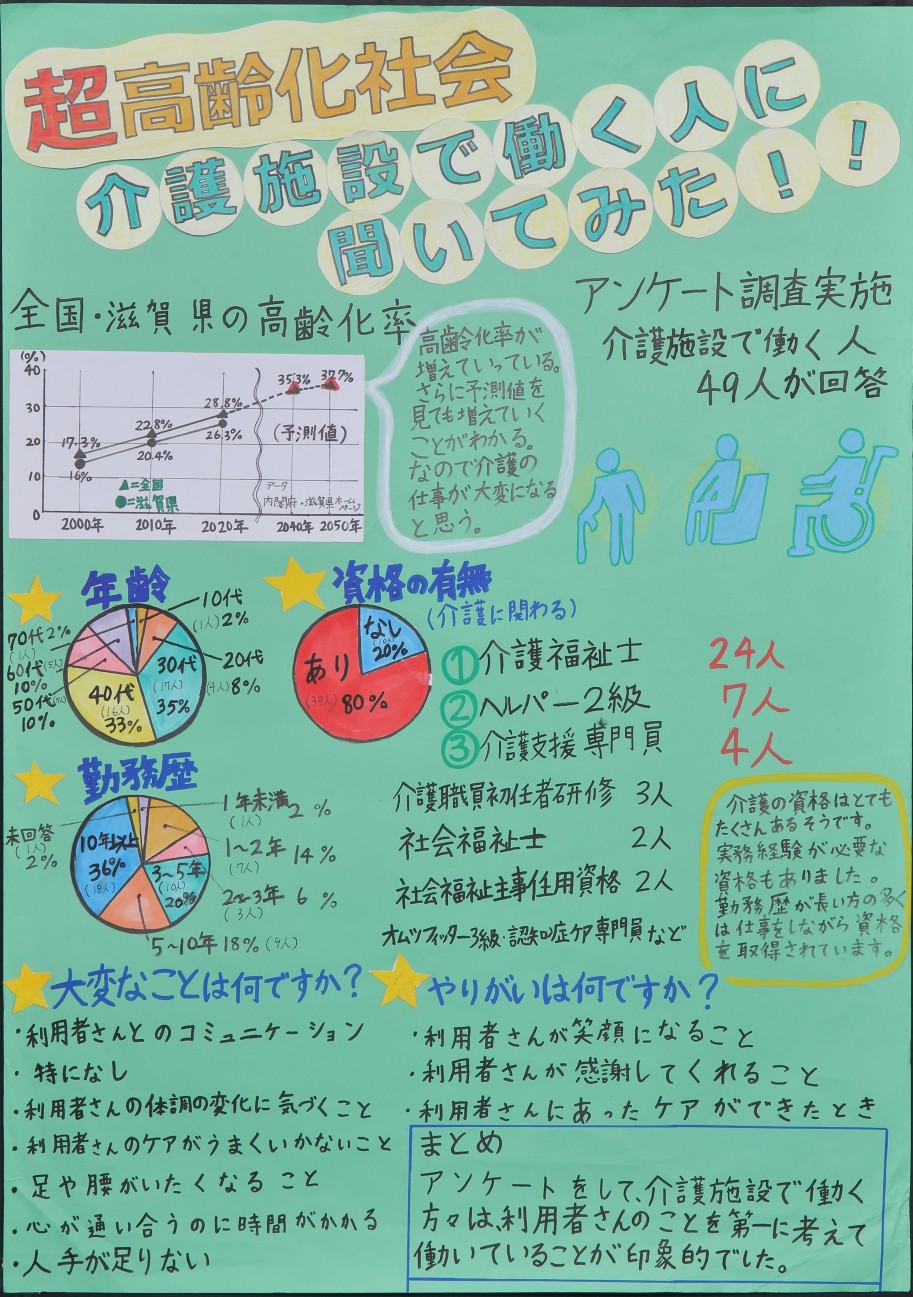 超高齢化社会
介護施設で働く人に
聞いてみた!!
全国・滋賀県の高齢化率
(%)
40
30
20
10
0
17.3%
22.8%
28.8%
35.3%
37.7%
16%
20.4%
26.3%
(予測値)
▲=全国
●=滋賀県
データ
内閣府・滋賀県ホームページ
2000年 2010年 2020年 2040年 2050年
高齢化率が
増えていっている。
さらに予測値を
見ても増えていく
ことがわかる。
なので介護の
仕事が大変になる
と思う。
アンケート調査実施
介護施設で働く人
49人が回答
年齢
10代
(1人)2%
20代
(4人)8%
30代
(17人)
35%
40代
(16人)
33%
50代(5人)
10%
60代(5人)
10%
70代2%
(1人)
資格の有無
(介護に関わる)
なし
(10人)
20%
あり
(39人)
80%
①介護福祉士 24人
②ヘルパー2級 7人
③介護支援専門員 4人
介護職員初任者研修 3人
社会福祉士 2人
社会福祉主事任用資格 2人
オムツフィッター3級・認知症ケア専門員など
勤務歴
1年未満 2%
(1人)
1~2年 14%
(7人)
2~3年 6%
(3人)
3~5年
(10人)
20%
5~10年18%(9人)
10年以上
36%
(18人)
未回答
(1人)
2%
介護の資格はとても
たくさんあるそうです。
実務経験が必要な
資格もありました。
勤務歴が長い方の多く
は仕事をしながら資格
を取得されています。
大変なことは何ですか?
・利用者さんとのコミュニケーション
・特になし
・利用者さんの体調の変化に気づくこと
・利用者さんのケアがうまくいかないこと
・足や腰がいたくなること
・心が通い合うのに時間がかかる
・人手が足りない
やりがいは何ですか?
・利用者さんが笑顔になること
・利用者さんが感謝してくれること
・利用者さんにあったケアができたとき
まとめ
アンケートをして、介護施設で働く
方々は、利用者さんのことを第一に考えて
働いていることが印象的でした。